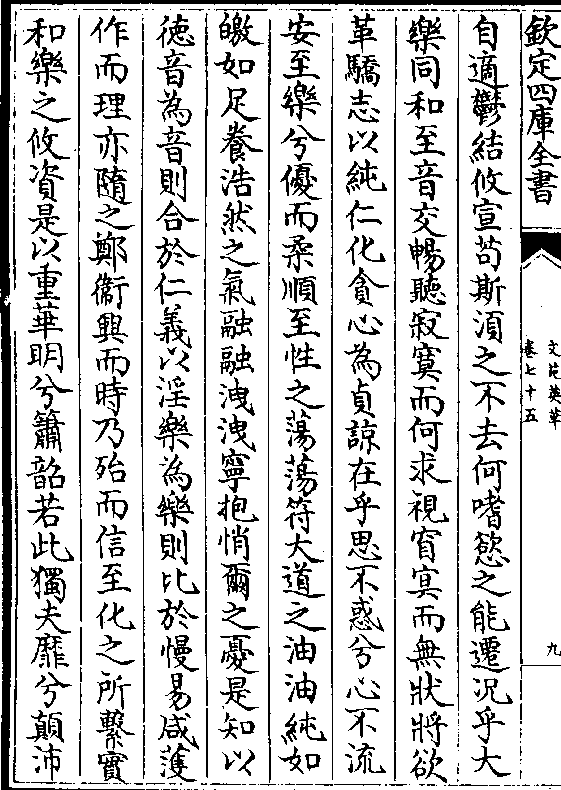 欽定四庫全書
文苑英華
卷七十五
九
自適鬱結攸宣苟斯湏之不去何嗜慾之能遷況乎大
樂同和至音交暢聽寂寞而何求視窅㝠而無狀將欲
革驕志以純仁化貪心為貞諒在乎思不惑兮心不流
安至樂兮優而柔順至性之蕩蕩符大道之油油純如
皦如足養浩然之氣融融洩洩寧抱悄爾之憂是知以
徳音為音則合於仁義以淫樂為樂則比於慢易咸頀
作而理亦隨之鄭衞興而時乃殆而信至化之所繫實
和樂之攸資是以重華明兮簫韶若此獨夫靡兮顛沛